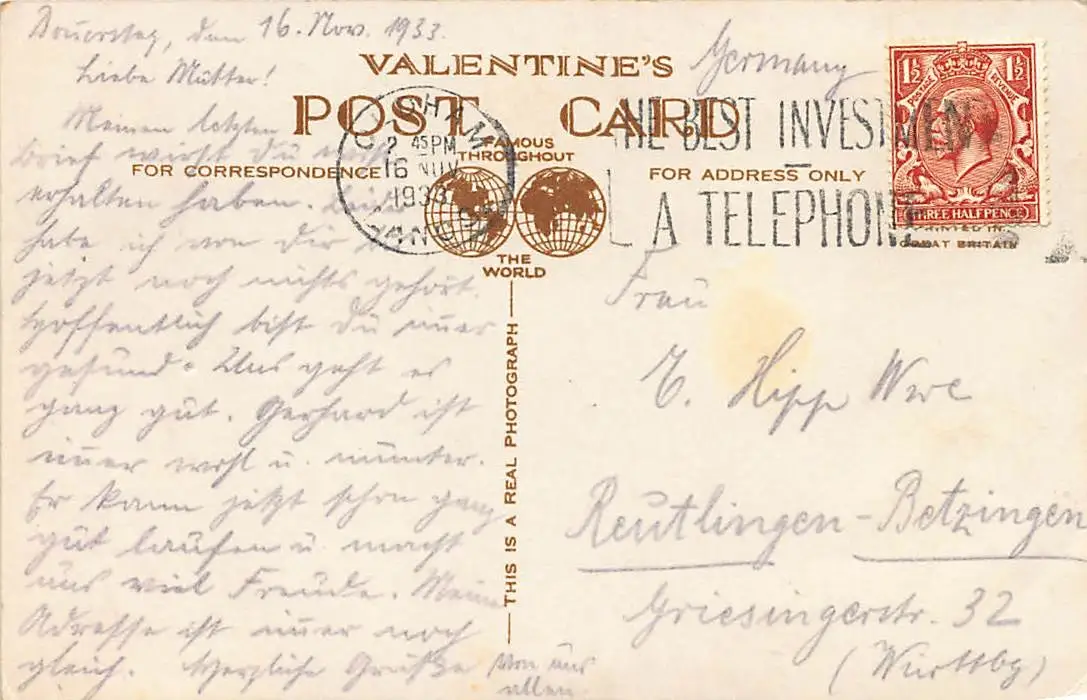 Donnerstag, den 16. Nov. 1933.
Liebe Mutter!
Meinen letzten
Brief wirst Du
erhalten haben. Leider
habe ich von Dir
jetzt noch nichts gehört.
Hoffentlich bist Du immer
gesund. Uns geht es
ganz gut. Gerhard ist
immer wohl u. munter.
Er kann jetzt schon ganz
gut laufen u. macht
uns viel Freude. Meine
Adresse ist immer noch
gleich. Herzliche Grüße von uns
allen.
VALENTINE'S
POST CARD
FAMOUS
THROUGHOUT
THE
WORLD
FOR CORRESPONDENCE
FOR ADDRESS ONLY
THIS IS A REAL PHOTOGRAPH
2 45 PM
16 NOV
1933
THE BEST INVESTMENT
A TELEPHONE
1½ 1½
POSTAGE REVENUE
THREE HALFPENCE
PRINTED IN
GREAT BRITAIN
Germany
Frau
E. Hipp Wwe
Reutlingen-Betzingen
Griesingerstr. 32
(Württbg)